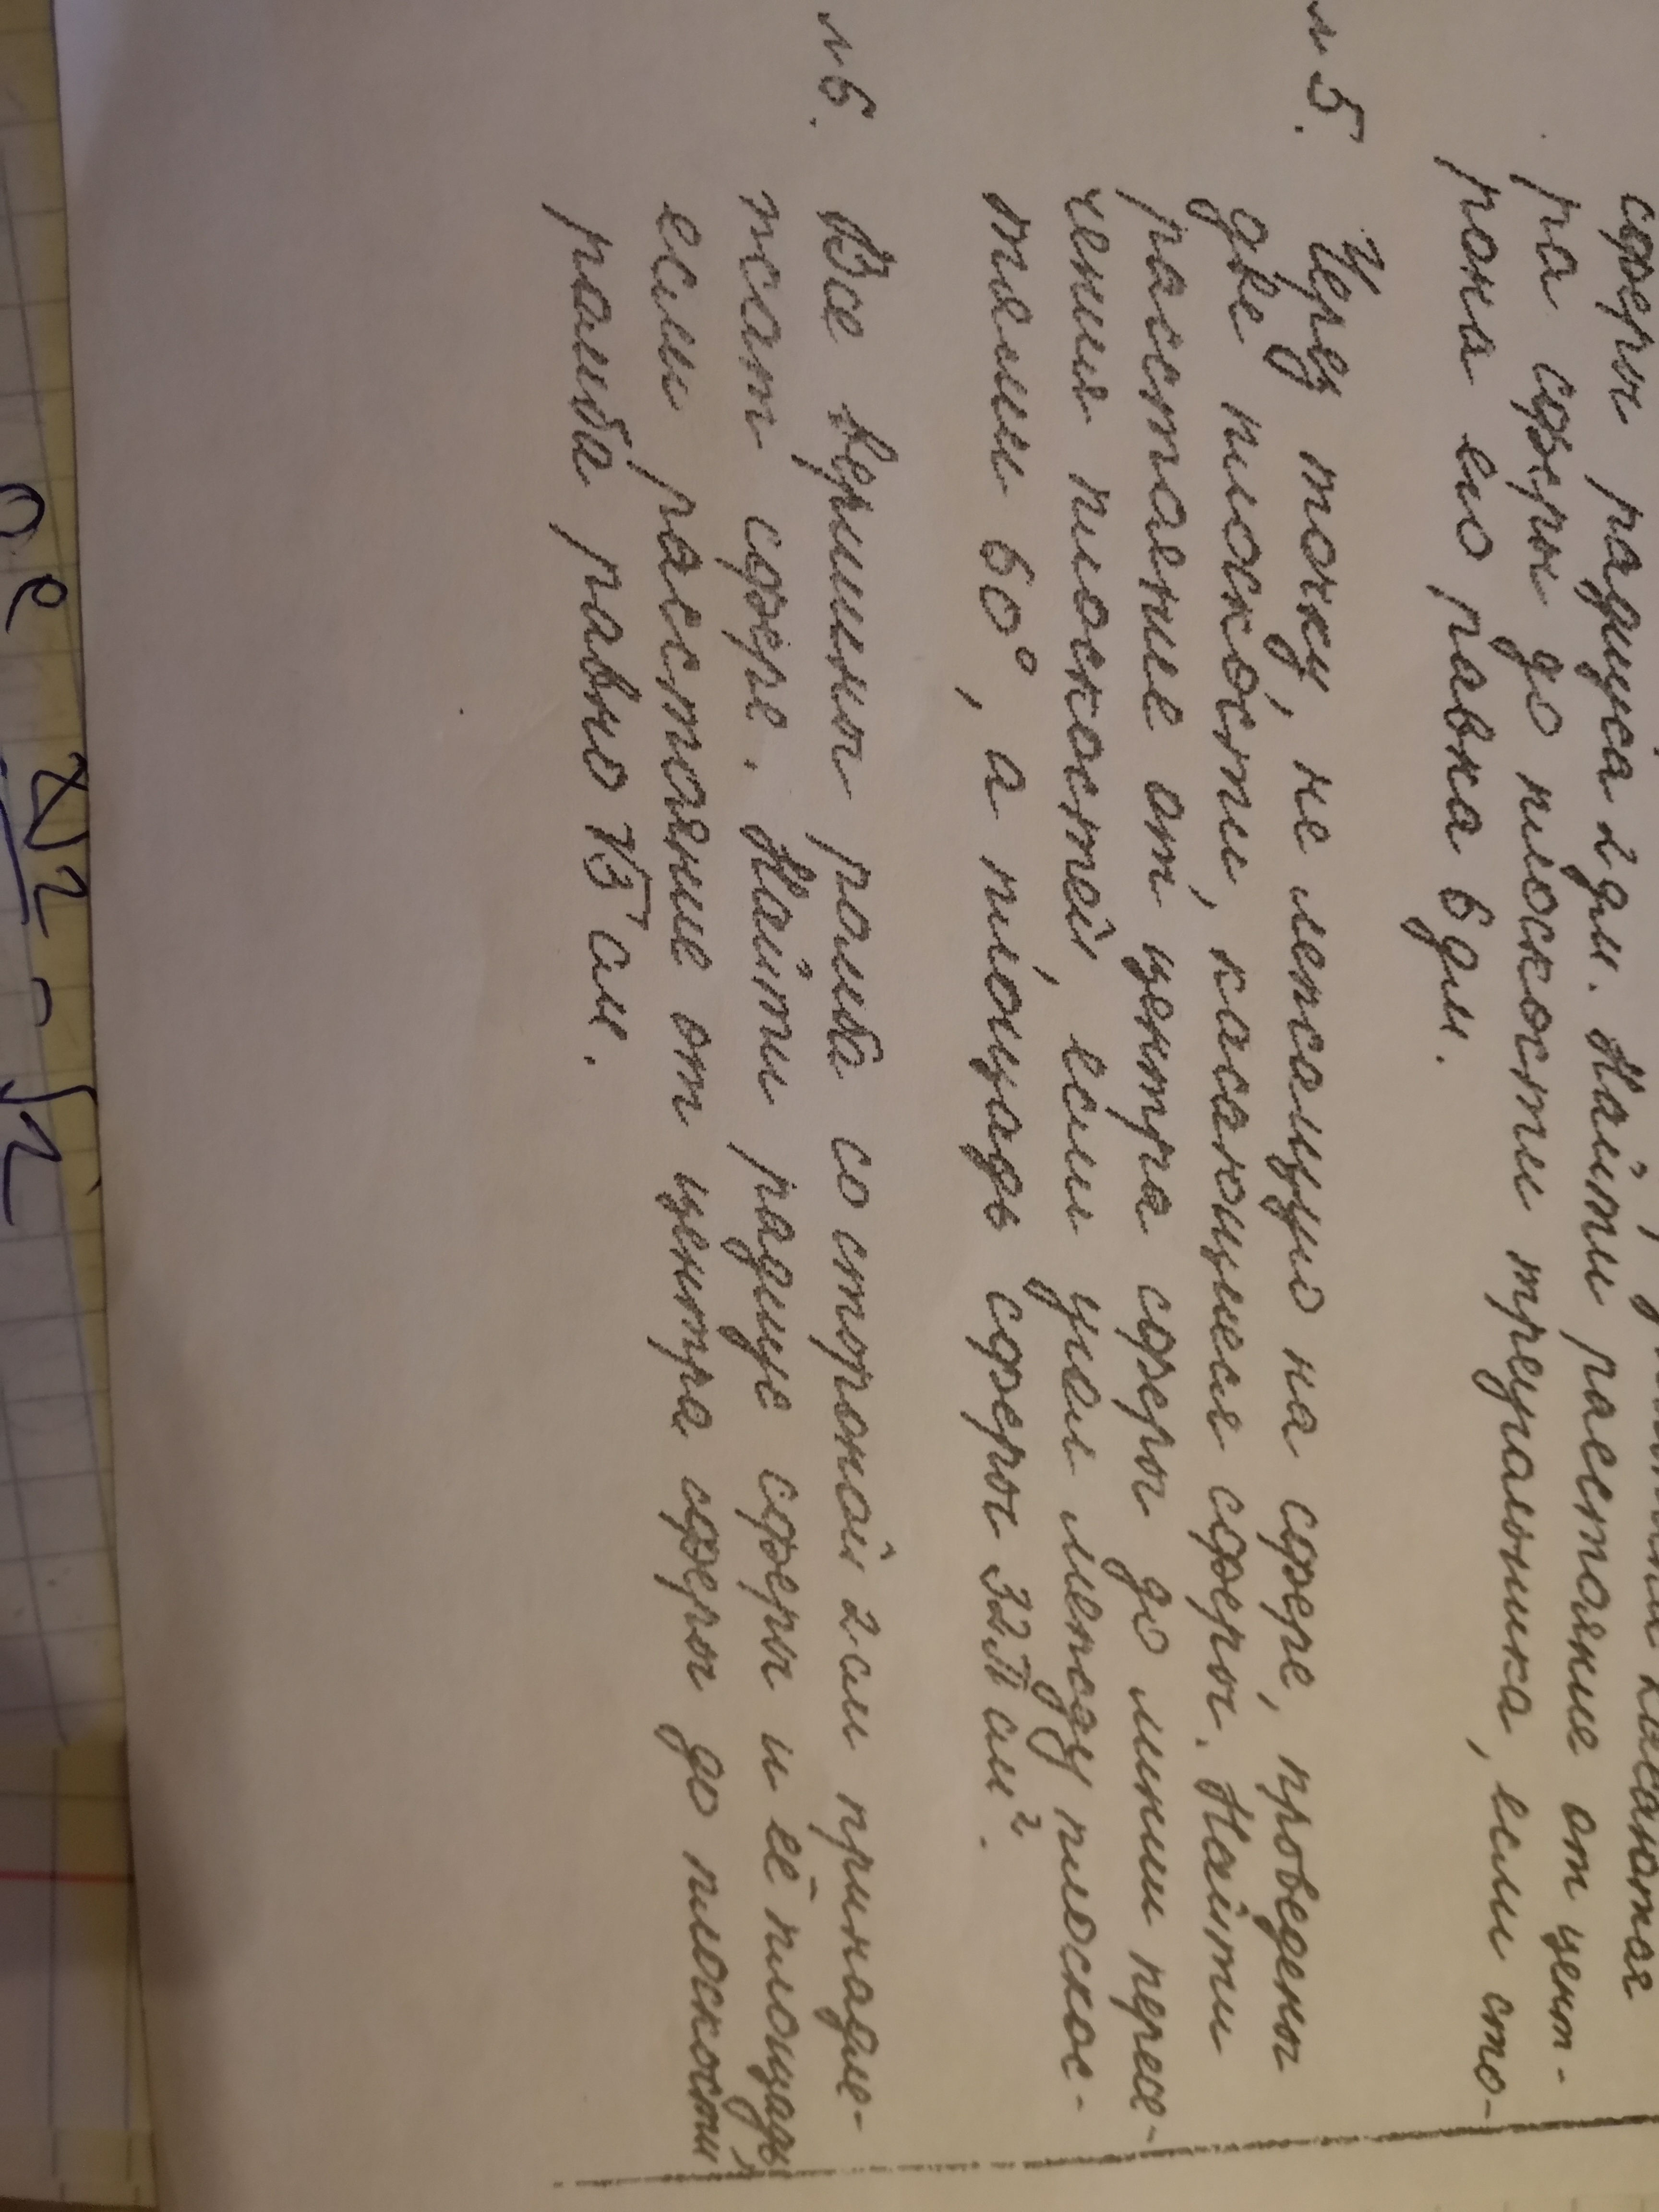 сферы радиуса 2 дм. Найти расстояние от цент-
ра сферы до плоскости треугольника, если сто-
рона его равна 6 дм.
№5. Через точку, не лежащую на сфере, проведены
две плоскости, касающиеся сферы. Найти
расстояние от центра сферы до линии пересе-
чения плоскостей, если угол между плоскос-
тями 60°, а площадь сферы 32π см².
№6. Все вершины ромба со стороной 2 см принадле-
жат сфере. Найти радиус сферы и её площадь,
если расстояние от центра сферы до плоскости
ромба равно √3 см.